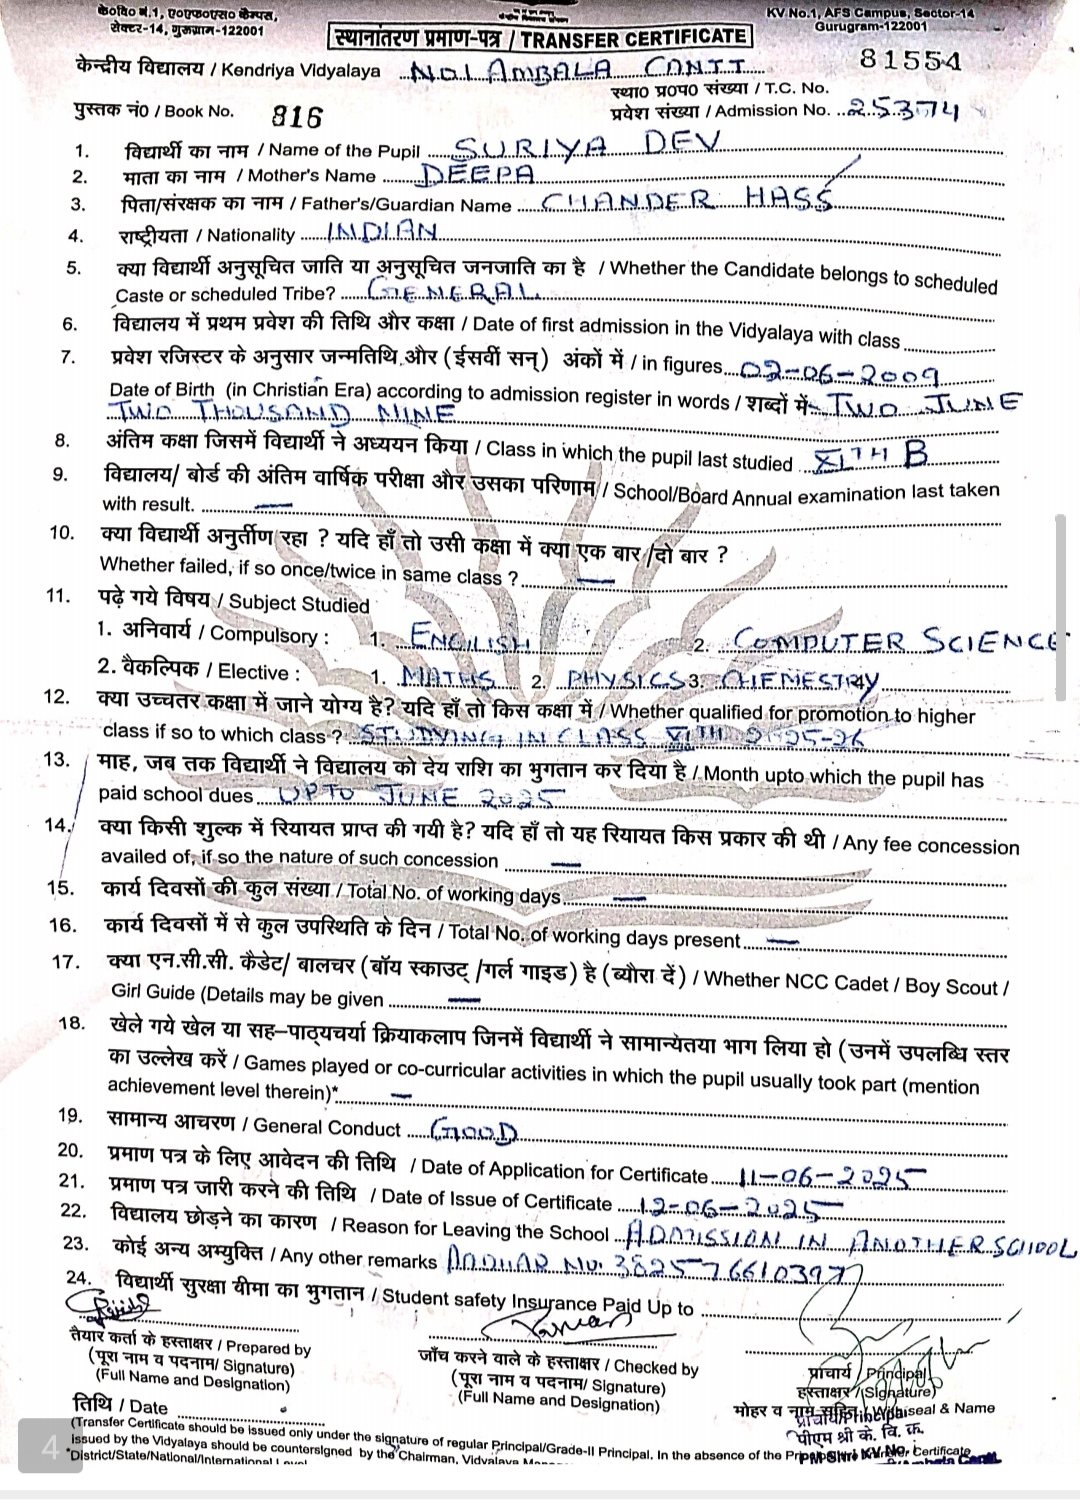 के०वि० नं.1, ए०एफ०एस० कैम्पस,
सेक्टर-14, गुरुग्राम-122001
KV No.1, AFS Campus, Sector-14
Gurugram-122001
स्थानांतरण प्रमाण-पत्र / TRANSFER CERTIFICATE
केन्द्रीय विद्यालय / Kendriya Vidyalaya NO.1 AMBALA CANTT 81554
स्था० प्र०प० संख्या / T.C. No.
पुस्तक नं० / Book No. 816 प्रवेश संख्या / Admission No. 25374
1. विद्यार्थी का नाम / Name of the Pupil SURIYA DEV
2. माता का नाम / Mother's Name DEEPA
3. पिता/संरक्षक का नाम / Father's/Guardian Name CHANDER HASS
4. राष्ट्रीयता / Nationality INDIAN
5. क्या विद्यार्थी अनुसूचित जाति या अनुसूचित जनजाति का है / Whether the Candidate belongs to scheduled
Caste or scheduled Tribe? GENERAL
6. विद्यालय में प्रथम प्रवेश की तिथि और कक्षा / Date of first admission in the Vidyalaya with class
7. प्रवेश रजिस्टर के अनुसार जन्मतिथि और (ईसवीं सन्) अंकों में / in figures 02-06-2009
Date of Birth (in Christian Era) according to admission register in words / शब्दों में TWO JUNE
TWO THOUSAND NINE
8. अंतिम कक्षा जिसमें विद्यार्थी ने अध्ययन किया / Class in which the pupil last studied XITH B
9. विद्यालय/ बोर्ड की अंतिम वार्षिक परीक्षा और उसका परिणाम / School/Board Annual examination last taken
with result. —
10. क्या विद्यार्थी अनुर्तीण रहा ? यदि हाँ तो उसी कक्षा में क्या एक बार/दो बार ?
Whether failed, if so once/twice in same class ? —
11. पढ़े गये विषय / Subject Studied
1. अनिवार्य / Compulsory : 1. ENGLISH 2. COMPUTER SCIENCE
2. वैकल्पिक / Elective : 1. MATHS 2. PHYSICS 3. CHEMESTRY 4.
12. क्या उच्चतर कक्षा में जाने योग्य है? यदि हाँ तो किस कक्षा में / Whether qualified for promotion to higher
class if so to which class ? STUDYING IN CLASS 2025-26
13. माह, जब तक विद्यार्थी ने विद्यालय को देय राशि का भुगतान कर दिया है / Month upto which the pupil has
paid school dues UPTO JUNE 2025
14. क्या किसी शुल्क में रियायत प्राप्त की गयी है? यदि हाँ तो यह रियायत किस प्रकार की थी / Any fee concession
availed of, if so the nature of such concession —
15. कार्य दिवसों की कुल संख्या / Total No. of working days —
16. कार्य दिवसों में से कुल उपस्थिति के दिन / Total No. of working days present —
17. क्या एन.सी.सी. कैडेट/ बालचर (बॉय स्काउट /गर्ल गाइड) है (ब्यौरा दें) / Whether NCC Cadet / Boy Scout /
Girl Guide (Details may be given —
18. खेले गये खेल या सह–पाठ्यचर्या क्रियाकलाप जिनमें विद्यार्थी ने सामान्यतया भाग लिया हो (उनमें उपलब्धि स्तर
का उल्लेख करें / Games played or co-curricular activities in which the pupil usually took part (mention
achievement level therein)* —
19. सामान्य आचरण / General Conduct GOOD
20. प्रमाण पत्र के लिए आवेदन की तिथि / Date of Application for Certificate 11-06-2025
21. प्रमाण पत्र जारी करने की तिथि / Date of Issue of Certificate 12-06-2025
22. विद्यालय छोड़ने का कारण / Reason for Leaving the School ADMISSION IN ANOTHER SCHOOL
23. कोई अन्य अभ्युक्ति / Any other remarks AADHAR NO. 382576610397
24. विद्यार्थी सुरक्षा वीमा का भुगतान / Student safety Insurance Paid Up to
तैयार कर्ता के हस्ताक्षर / Prepared by
(पूरा नाम व पदनाम/ Signature)
(Full Name and Designation)
जाँच करने वाले के हस्ताक्षर / Checked by
(पूरा नाम व पदनाम/ Signature)
(Full Name and Designation)
प्राचार्य / Principal
हस्ताक्षर /(Signature)
मोहर व नाम सहित / With seal & Name
प्राचार्य/Principal
पीएम श्री के. वि. क्र.
PM Shri KV No.
तिथि / Date
(Transfer Certificate should be issued only under the signature of regular Principal/Grade-II Principal. In the absence of the
issued by the Vidyalaya should be countersigned by the Chairman, Vidyalaya Certificate
*District/State/National/International
4